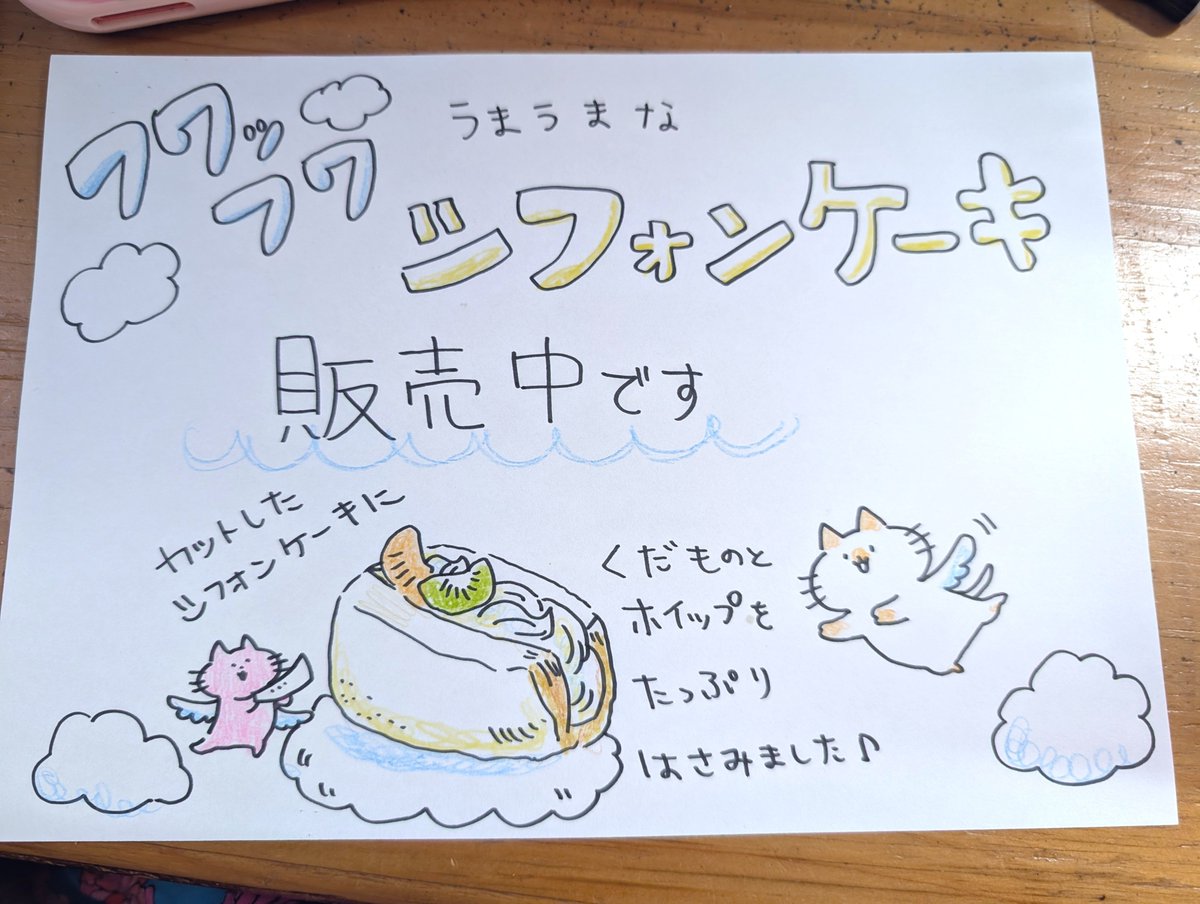 フワッ
フワ
うまうまな
シフォンケーキ
販売中です
カットした
シフォンケーキに
くだものと
ホイップを
たっぷり
はさみました♪